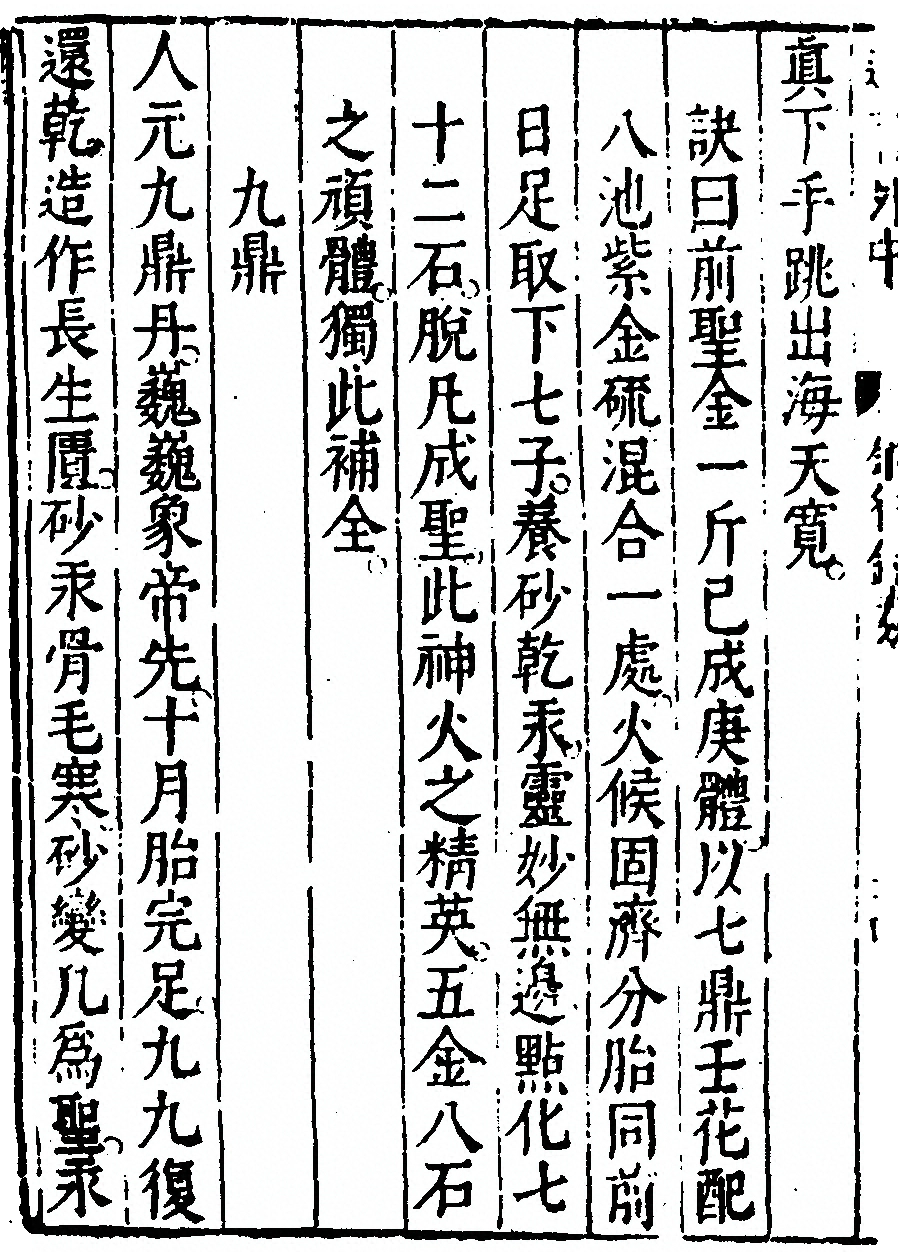 眞下手跳出海天寛。
訣曰前聖金一斤已成庚體以七鼎壬花配
八池紫金硫混合一處火候固濟分胎同前
日足取下七子養砂乾汞靈妙無邊點化七
十二石脫凡成聖此神火之精英五金八石
之頑體獨此補全。
九鼎
人元九鼎丹。巍巍象帝先十月胎完足九九復
還乾造作長生匱。砂汞骨毛寒砂變凡爲聖汞